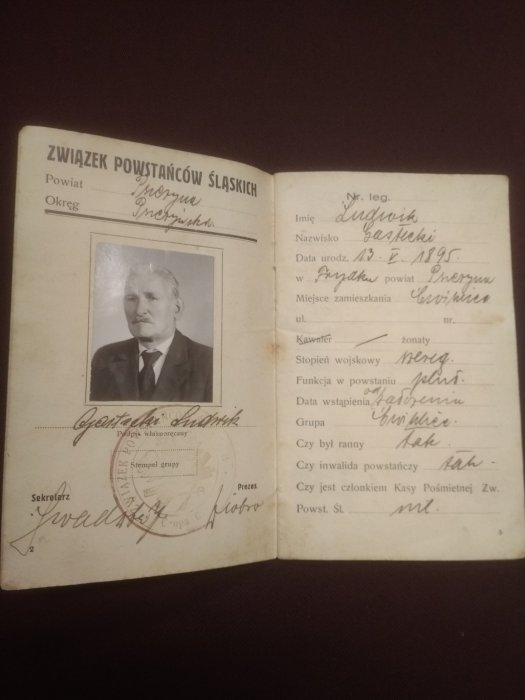 ZWIĄZEK POWSTAŃCÓW ŚLĄSKICH
Powiat Pszczyna
Okręg
Ludwik
Podpis własnoręczny
Stempel grupy
ZWIĄZEK PO
Sekretarz Prezes
2
Nr. leg.
Imię Ludwik
Nazwisko
Data urodz. 13. V. 1895.
w Frydku powiat Pszczyna
Miejsce zamieszkania Ćwiklice
ul. nr.
Kawaler / żonaty
Stopień wojskowy szereg.
Funkcja w powstaniu plut.
Data wstąpienia od
Grupa Ćwiklice.
Czy był ranny tak
Czy inwalida powstańczy tak -
Czy jest członkiem Kasy Pośmietnej Zw.
Powst. Śl.
3